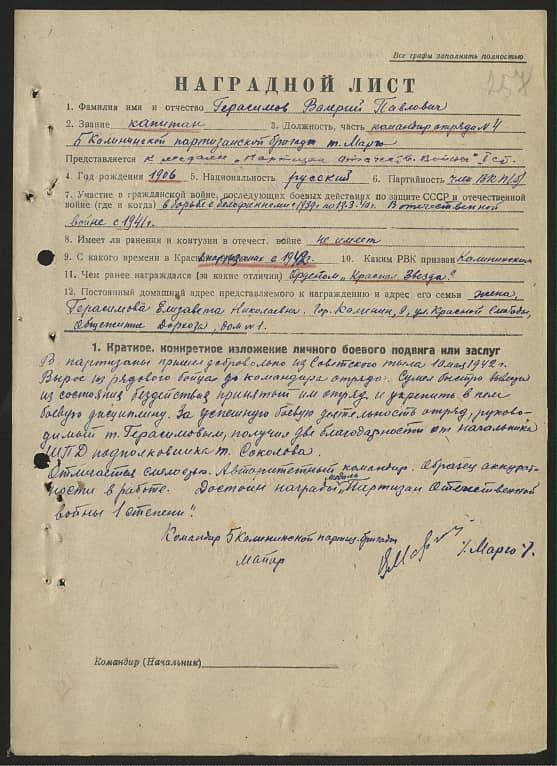 Все графы заполнять полностью
257
НАГРАДНОЙ ЛИСТ
1. Фамилия имя и отчество Герасимов Валерий Павлович
2. Звание капитан 3. Должность, часть командир отряда №4
5 Калининской партизанской бригады т. Марго
Представляется к медали „Партизан Отечеств. Войны" I ст.
4. Год рождения 1906 5. Национальность русский 6. Партийность член ВКП(б)
7. Участие в гражданской войне, последующих боевых действиях по защите СССР и отечественной
войне (где и когда) в борьбе с белофиннами с 1939 г. по 13.3.40 г. В отечественной
войне с 1941 г.
8. Имеет ли ранения и контузии в отечест. войне не имеет
9. С какого времени в Красн партизанах с 1942 г. 10. Каким РВК призван Калининским
11. Чем ранее награждался (за какие отличия) Орденом „Красная Звезда"
12. Постоянный домашний адрес представляемого к награждению и адрес его семьи жена,
Герасимова Елизавета Николаевна. Гор. Калинин, 9, ул. Красной Слободы,
Общежитие Дорхоза, дом №1.
1. Краткое, конкретное изложение личного боевого подвига или заслуг
В партизаны пришел добровольно из Советского тыла 10 мая 1942 г.
Вырос из рядового бойца до командира отряда. Сумел быстро вывести
из состояния бездействия принятый им отряд и укрепить в нем
боевую дисциплину. За успешную боевую деятельность отряд, руково-
димый т. Герасимовым, получил две благодарности от начальника
ШПД подполковника т. Соколова.
Отличается смелостью. Авторитетный командир. Образец аккурат-
ности в работе. Достоин награды медали „Партизан Отечественной
войны 1 степени".
Командир 5 Калининской партиз. бригады
майор /Марго/
Командир (Начальник)